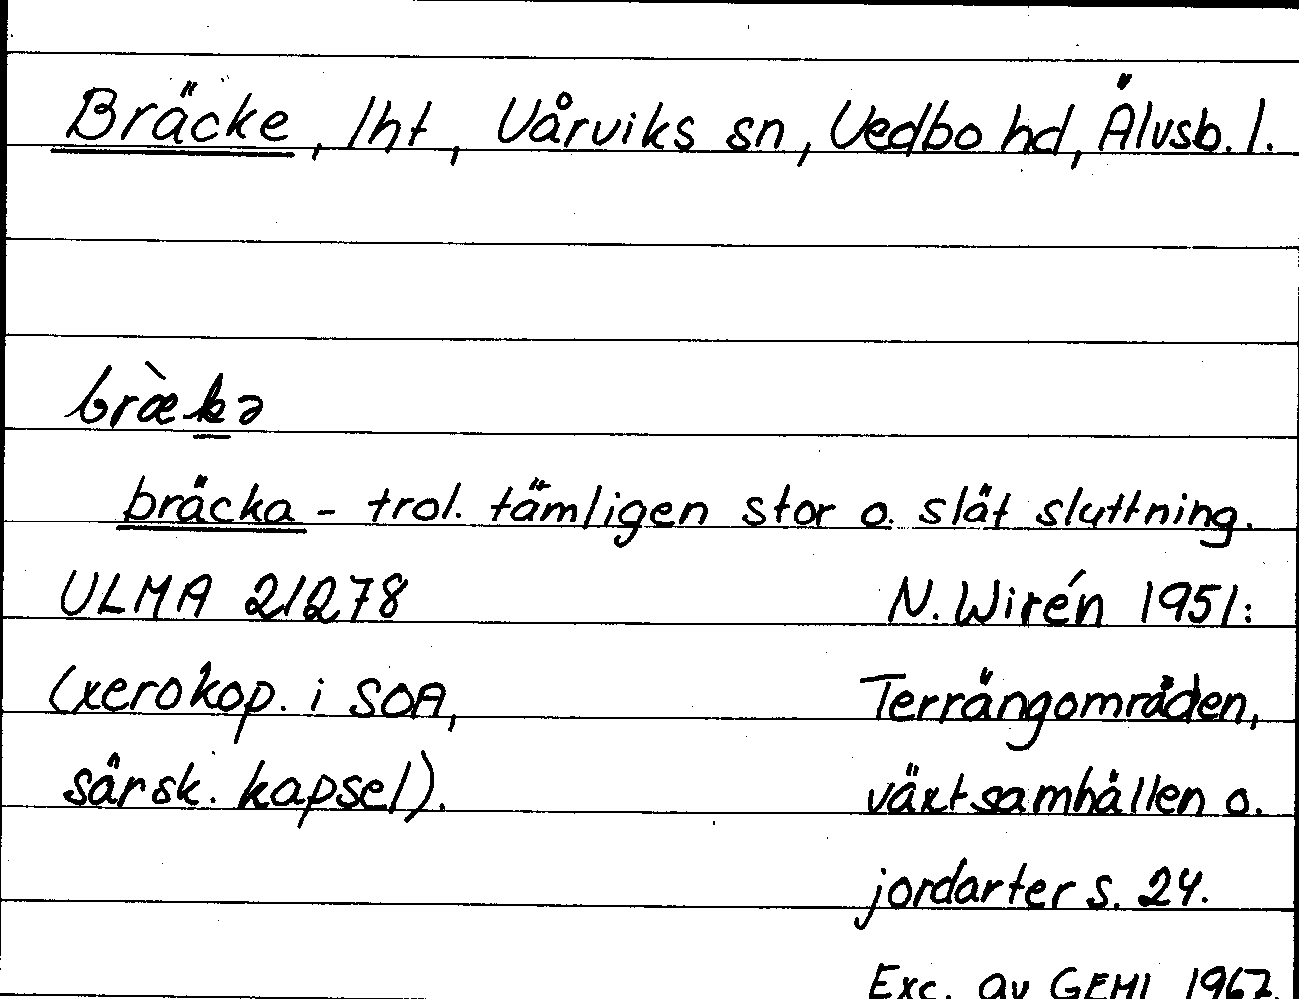 Bräcke, lht, Vårviks sn, Vedbo hd, Älvsb. l.
bræ̀kə
bräcka - trol. tämligen stor o. slät sluttning.
ULMA 21278 N. Wirén 1951:
(xerokop. i SOA, Terrängområden,
särsk. kapsel). växtsamhällen o.
jordarter s. 24.
Exc. av GEHI 1967.